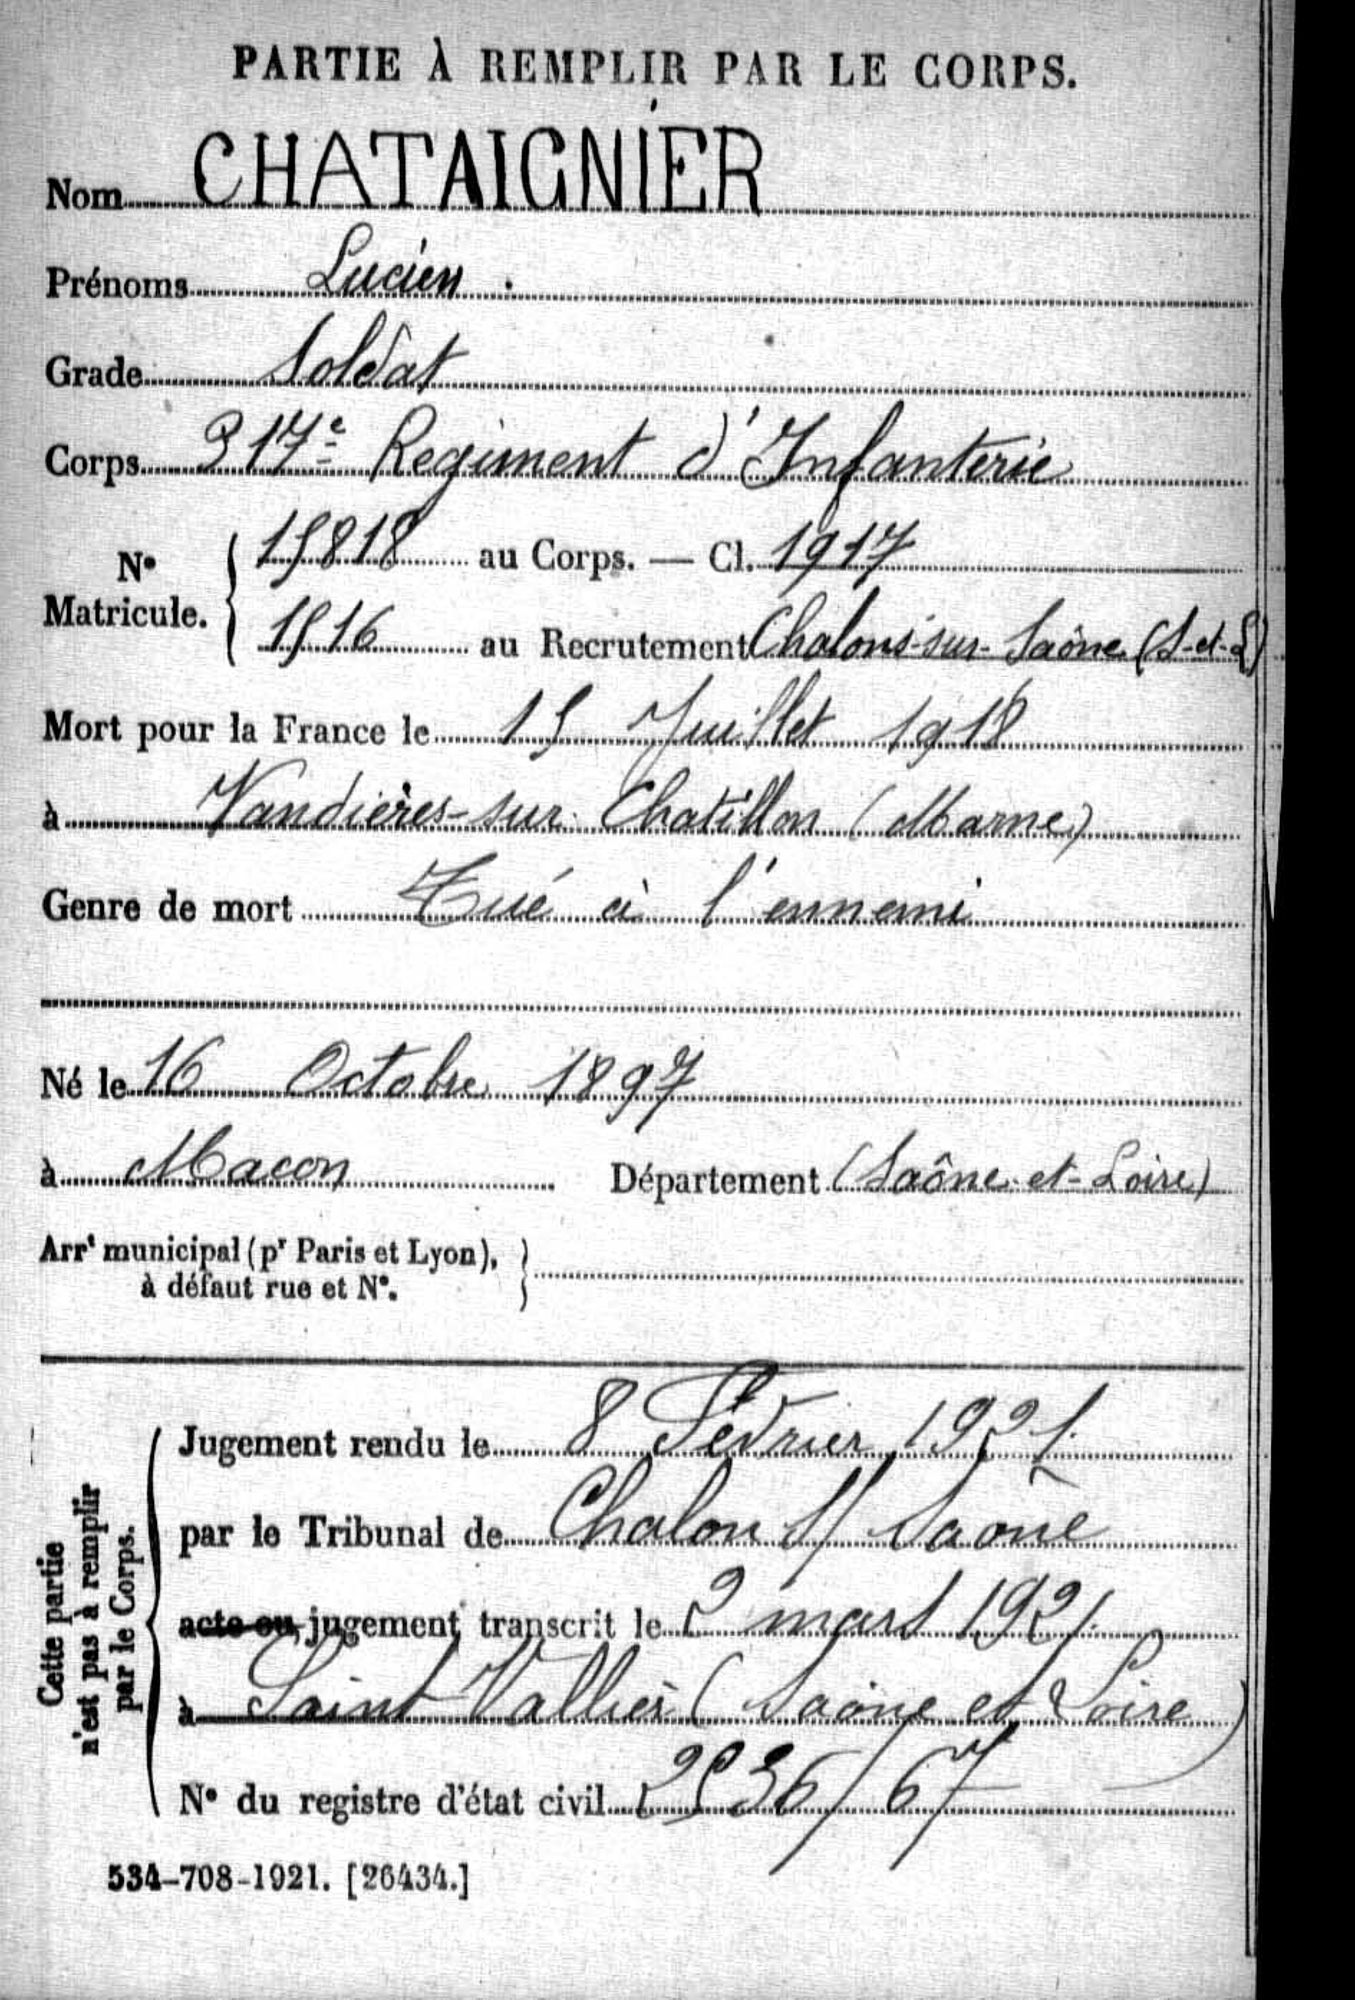 PARTIE À REMPLIR PAR LE CORPS.
Nom CHATAIGNIER
Prénoms Lucien.
Grade Soldat
Corps 317e Regiment d'Infanterie
No Matricule. 15818 au Corps. — Cl. 1917
1516 au Recrutement Chalons-sur-Saône (S-et-L)
Mort pour la France le 15 Juillet 1918
à Vandières-sur Chatillon (Marne)
Genre de mort Tué à l'ennemi
Né le 16 Octobre 1897
à Macon Département (Saône-et-Loire)
Arrt municipal (pr Paris et Lyon),
à défaut rue et No.
Cette partie n'est pas à remplir par le Corps.
Jugement rendu le 8 Février 1921.
par le Tribunal de Chalon s/ Saône
acte ou jugement transcrit le 2 mars 1921.
à Saint Vallier (Saône et Loire)
No du registre d'état civil 2536/67
534-708-1921. [26434.]